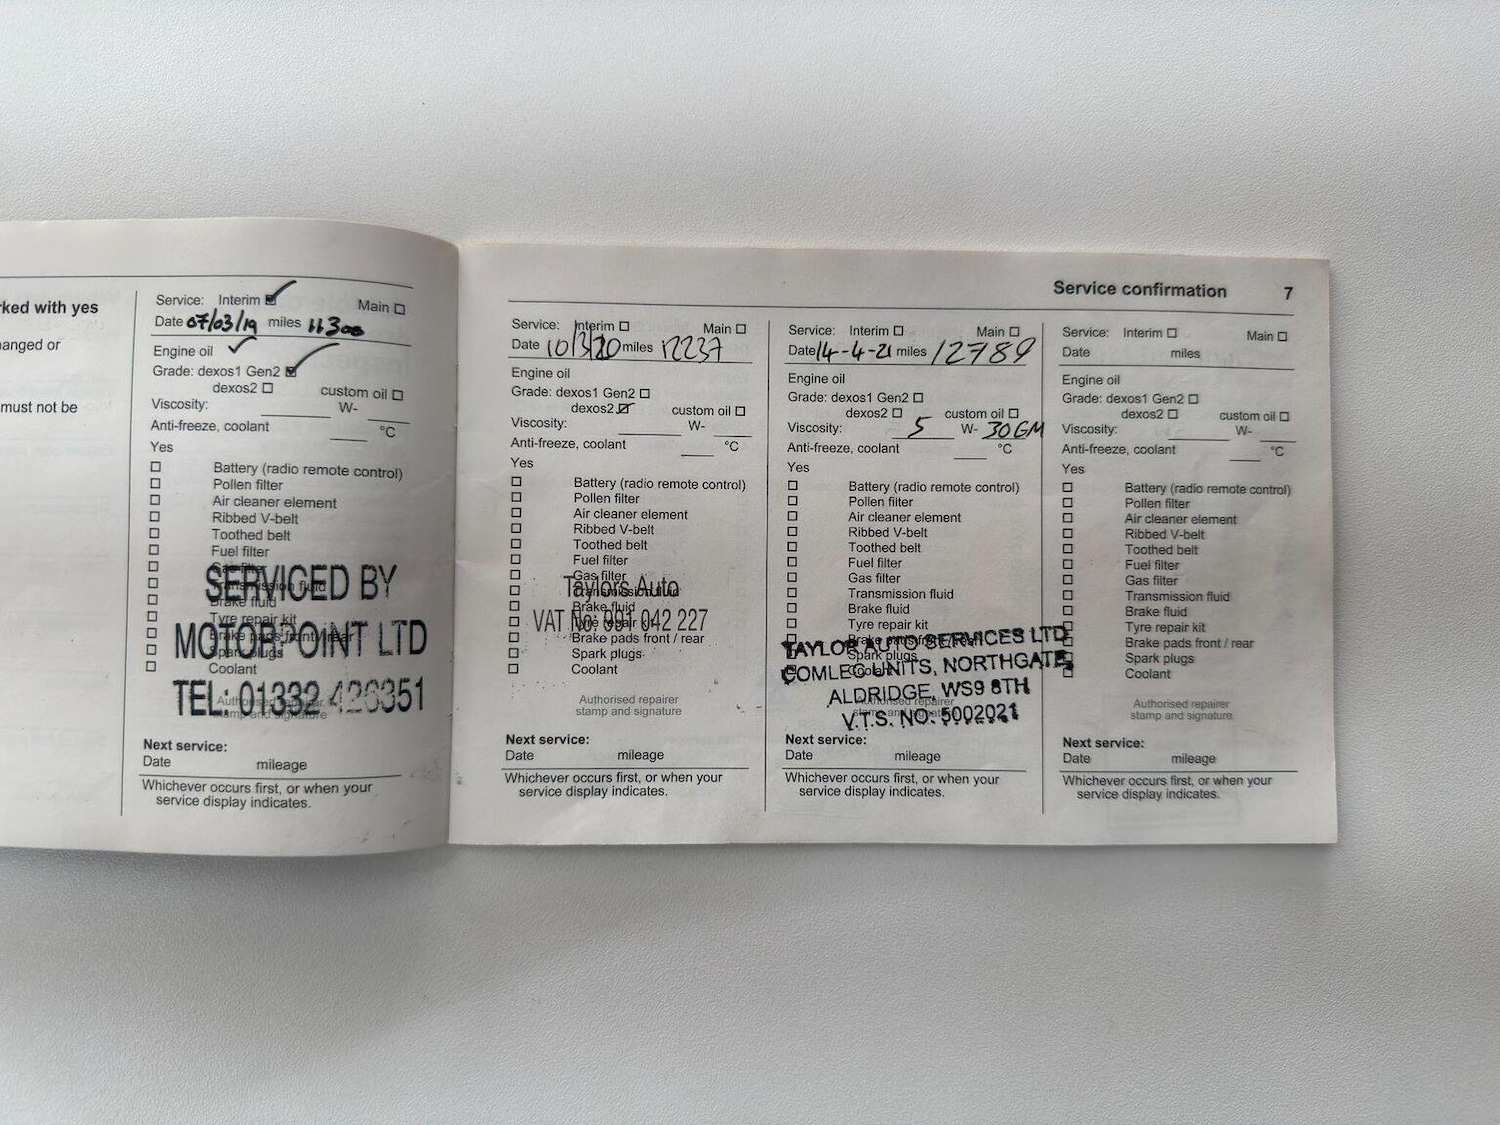 rked with yes
anged or
must not be
Service: Interim Main
Date 07/03/19 miles 11300
Engine oil
Grade: dexos1 Gen2
dexos2 custom oil
Viscosity: W-
Anti-freeze, coolant °C
Yes
Battery (radio remote control)
Pollen filter
Air cleaner element
Ribbed V-belt
Toothed belt
Fuel filter
Gas filter
Transmission fluid
Brake fluid
Tyre repair kit
Brake pads front / rear
Spark plugs
Coolant
SERVICED BY
MOTORPOINT LTD
TEL: 01332 426351
Authorised repairer
stamp and signature
Next service:
Date mileage
Whichever occurs first, or when your
service display indicates.
Service confirmation 7
Service: Interim Main
Date 10/3/20 miles 12237
Engine oil
Grade: dexos1 Gen2
dexos2 custom oil
Viscosity: W-
Anti-freeze, coolant °C
Yes
Battery (radio remote control)
Pollen filter
Air cleaner element
Ribbed V-belt
Toothed belt
Fuel filter
Gas filter
Transmission fluid
Brake fluid
Tyre repair kit
Brake pads front / rear
Spark plugs
Coolant
Taylors Auto
VAT No: 991 042 227
Authorised repairer
stamp and signature
Next service:
Date mileage
Whichever occurs first, or when your
service display indicates.
Service: Interim Main
Date 14-4-21 miles 12789
Engine oil
Grade: dexos1 Gen2
dexos2 custom oil
Viscosity: 5 W- 30 GM
Anti-freeze, coolant °C
Yes
Battery (radio remote control)
Pollen filter
Air cleaner element
Ribbed V-belt
Toothed belt
Fuel filter
Gas filter
Transmission fluid
Brake fluid
Tyre repair kit
Brake pads front / rear
Spark plugs
Coolant
TAYLOR AUTO SERVICES LTD
COMLEC UNITS, NORTHGATE
ALDRIDGE, WS9 8TH
V.T.S. NO: 5002021
Authorised repairer
stamp and signature
Next service:
Date mileage
Whichever occurs first, or when your
service display indicates.
Service: Interim Main
Date miles
Engine oil
Grade: dexos1 Gen2
dexos2 custom oil
Viscosity: W-
Anti-freeze, coolant °C
Yes
Battery (radio remote control)
Pollen filter
Air cleaner element
Ribbed V-belt
Toothed belt
Fuel filter
Gas filter
Transmission fluid
Brake fluid
Tyre repair kit
Brake pads front / rear
Spark plugs
Coolant
Authorised repairer
stamp and signature
Next service:
Date mileage
Whichever occurs first, or when your
service display indicates.